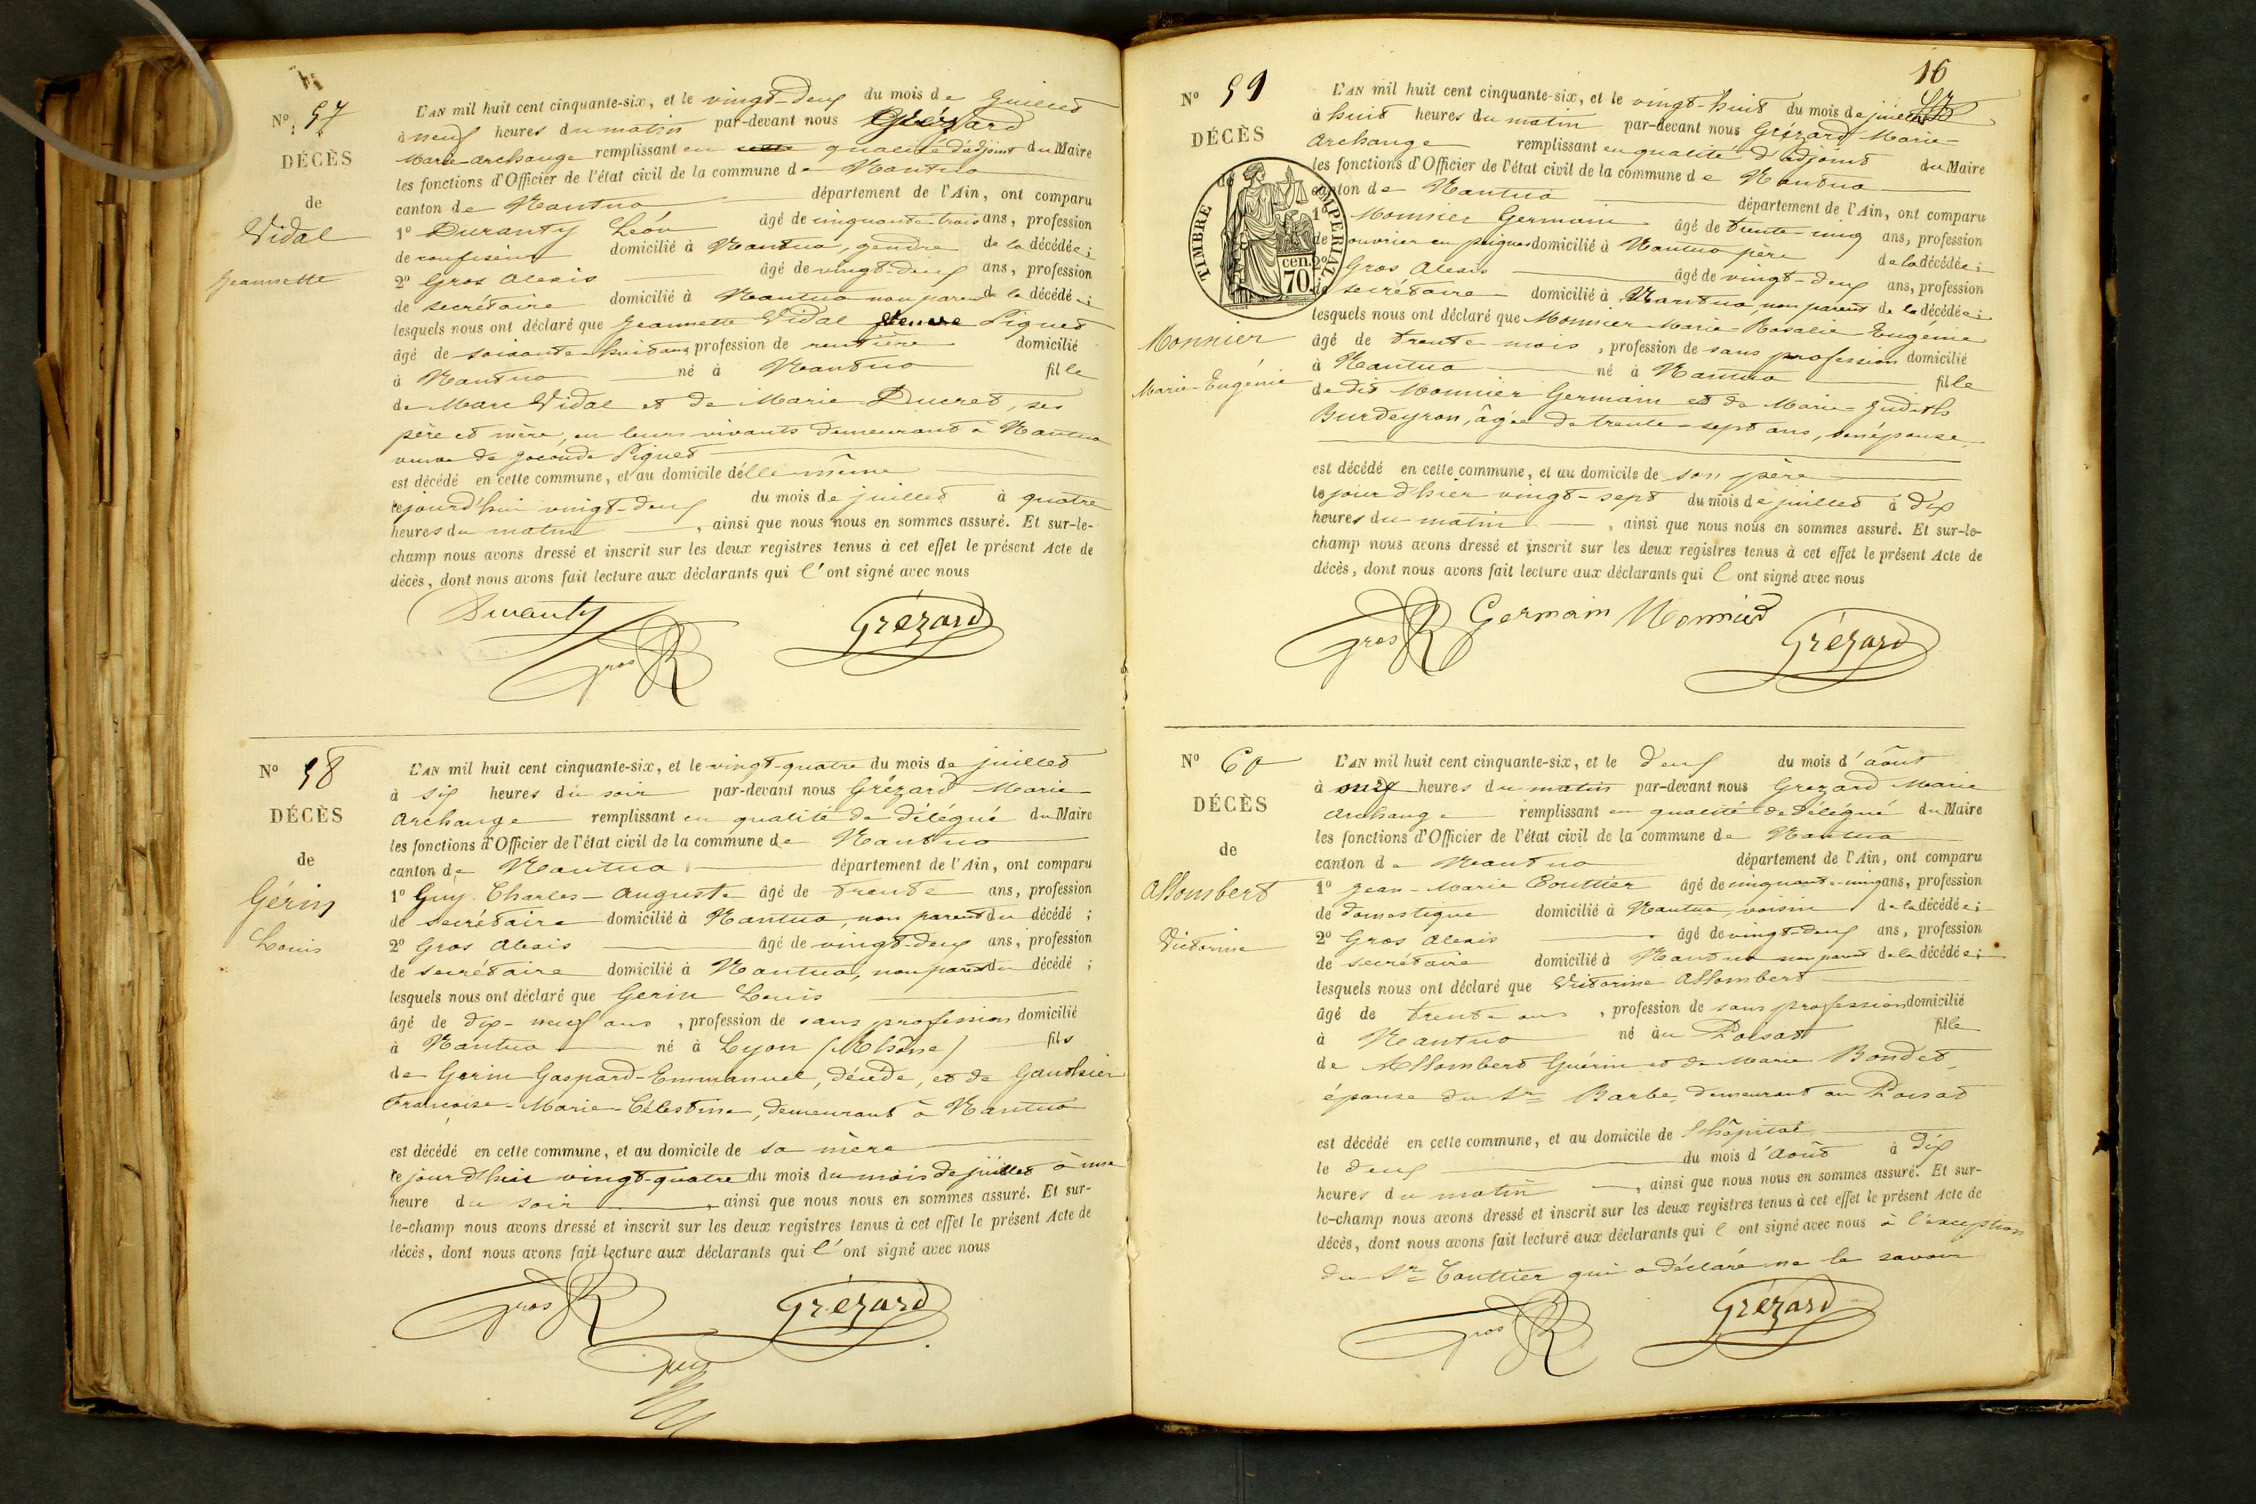 No. 57
DÉCÈS
de
Vidal
Jeannette
L'AN mil huit cent cinquante-six, et le vingt-deux du mois de Juillet
à neuf heures du matin par-devant nous Grézard
Marie-Archange remplissant en qualité d'adjoint du Maire
les fonctions d'Officier de l'état civil de la commune de Nantua
canton de Nantua département de l'Ain, ont comparu
1º Duranty Léon âgé de cinquante-trois ans, profession
de confiseur domicilié à Nantua, gendre de la décédée;
2º Gros Alexis âgé de vingt-deux ans, profession
de secrétaire domicilié à Nantua non parent de la décédée;
lesquels nous ont déclaré que Jeannette Vidal veuve Piquet
âgé de soixante-huit ans, profession de rentière domicilié
à Nantua né à Nantua fille
de Marc Vidal et de Marie Ducret, ses
père et mère, en leurs vivants demeurant à Nantua
veuve de Joconde Piquet
est décédé en cette commune, et au domicile d'elle même
cejourd'hui vingt-deux du mois de juillet à quatre
heures du matin, ainsi que nous nous en sommes assuré. Et sur-le-
champ nous avons dressé et inscrit sur les deux registres tenus à cet effet le présent Acte de
décès, dont nous avons fait lecture aux déclarants qui l'ont signé avec nous
Duranty
Gros
Grézard
No 58
DÉCÈS
de
Gérin
Louis
L'AN mil huit cent cinquante-six, et le vingt-quatre du mois de juillet
à six heures du soir par-devant nous Grézard Marie-
Archange remplissant en qualité de délégué du Maire
les fonctions d'Officier de l'état civil de la commune de Nantua
canton de Nantua département de l'Ain, ont comparu
1º Guy Charles-Auguste âgé de trente ans, profession
de secrétaire domicilié à Nantua, non parent du décédé;
2º Gros Alexis âgé de vingt-deux ans, profession
de secrétaire domicilié à Nantua, non parent du décédé;
lesquels nous ont déclaré que Gerin Louis
âgé de dix-neuf ans, profession de sans profession domicilié
à Nantua né à Lyon (Rhône) fils
de Gerin Gaspard-Emmanuel, décédé, et de Gauthier
Françoise-Marie-Célestine, demeurant à Nantua
est décédé en cette commune, et au domicile de sa mère
cejourd'hui vingt-quatre du mois du mois de juillet à une
heure du soir, ainsi que nous nous en sommes assuré. Et sur-
le-champ nous avons dressé et inscrit sur les deux registres tenus à cet effet le présent Acte de
décès, dont nous avons fait lecture aux déclarants qui l'ont signé avec nous
Gros
Grézard
Guy
16
No 59
DÉCÈS
de
TIMBRE IMPERIAL
70 cen.
Monnier
Marie-Eugénie
L'AN mil huit cent cinquante-six, et le vingt-huit du mois de juillet
à huit heures du matin par-devant nous Grézard Marie-
Archange remplissant en qualité d'adjoint du Maire
les fonctions d'Officier de l'état civil de la commune de Nantua
canton de Nantua département de l'Ain, ont comparu
1º Monnier Germain âgé de trente-cinq ans, profession
de ouvrier en peignes domicilié à Nantua père de la décédée;
2º Gros Alexis âgé de vingt-deux ans, profession
de secrétaire domicilié à Nantua, non parent de la décédée;
lesquels nous ont déclaré que Monnier Marie-Rosalie Eugénie
âgé de trente mois, profession de sans profession domicilié
à Nantua né à Nantua fille
de dit Monnier Germain et de Marie-Judith
Burdeyron, âgée de trente-sept ans, son épouse
est décédé en cette commune, et au domicile de son père
le jour d'hier vingt-sept du mois de juillet à dix
heures du matin, ainsi que nous nous en sommes assuré. Et sur-le-
champ nous avons dressé et inscrit sur les deux registres tenus à cet effet le présent Acte de
décès, dont nous avons fait lecture aux déclarants qui l ont signé avec nous
Gros
Germain Monnier
Grézard
No 60
DÉCÈS
de
Allombert
Victorine
L'AN mil huit cent cinquante-six, et le deux du mois d'août
à onze heures du matin par-devant nous Grezard Marie
Archange remplissant en qualité de délégué du Maire
les fonctions d'Officier de l'état civil de la commune de Nantua
canton de Nantua département de l'Ain, ont comparu
1º Jean-Marie Couttier âgé de cinquante-cinq ans, profession
de domestique domicilié à Nantua, voisin de la décédée;
2º Gros Alexis âgé de vingt-deux ans, profession
de secrétaire domicilié à Nantua non parent de la décédée;
lesquels nous ont déclaré que Victorine Allombert
âgé de trente ans, profession de sans profession domicilié
à Nantua né au Poisat fille
de Allombert Guérin et de Marie Bondet,
épouse du Sr Barbe, demeurant au Poisat
est décédé en cette commune, et au domicile de l'hôpital
le deux du mois d'Août à dix
heures du matin, ainsi que nous nous en sommes assuré. Et sur-
le-champ nous avons dressé et inscrit sur les deux registres tenus à cet effet le présent Acte de
décès, dont nous avons fait lecture aux déclarants qui l ont signé avec nous à l'exception
du Sr Couttier qui a déclaré ne le savoir
Gros
Grézard